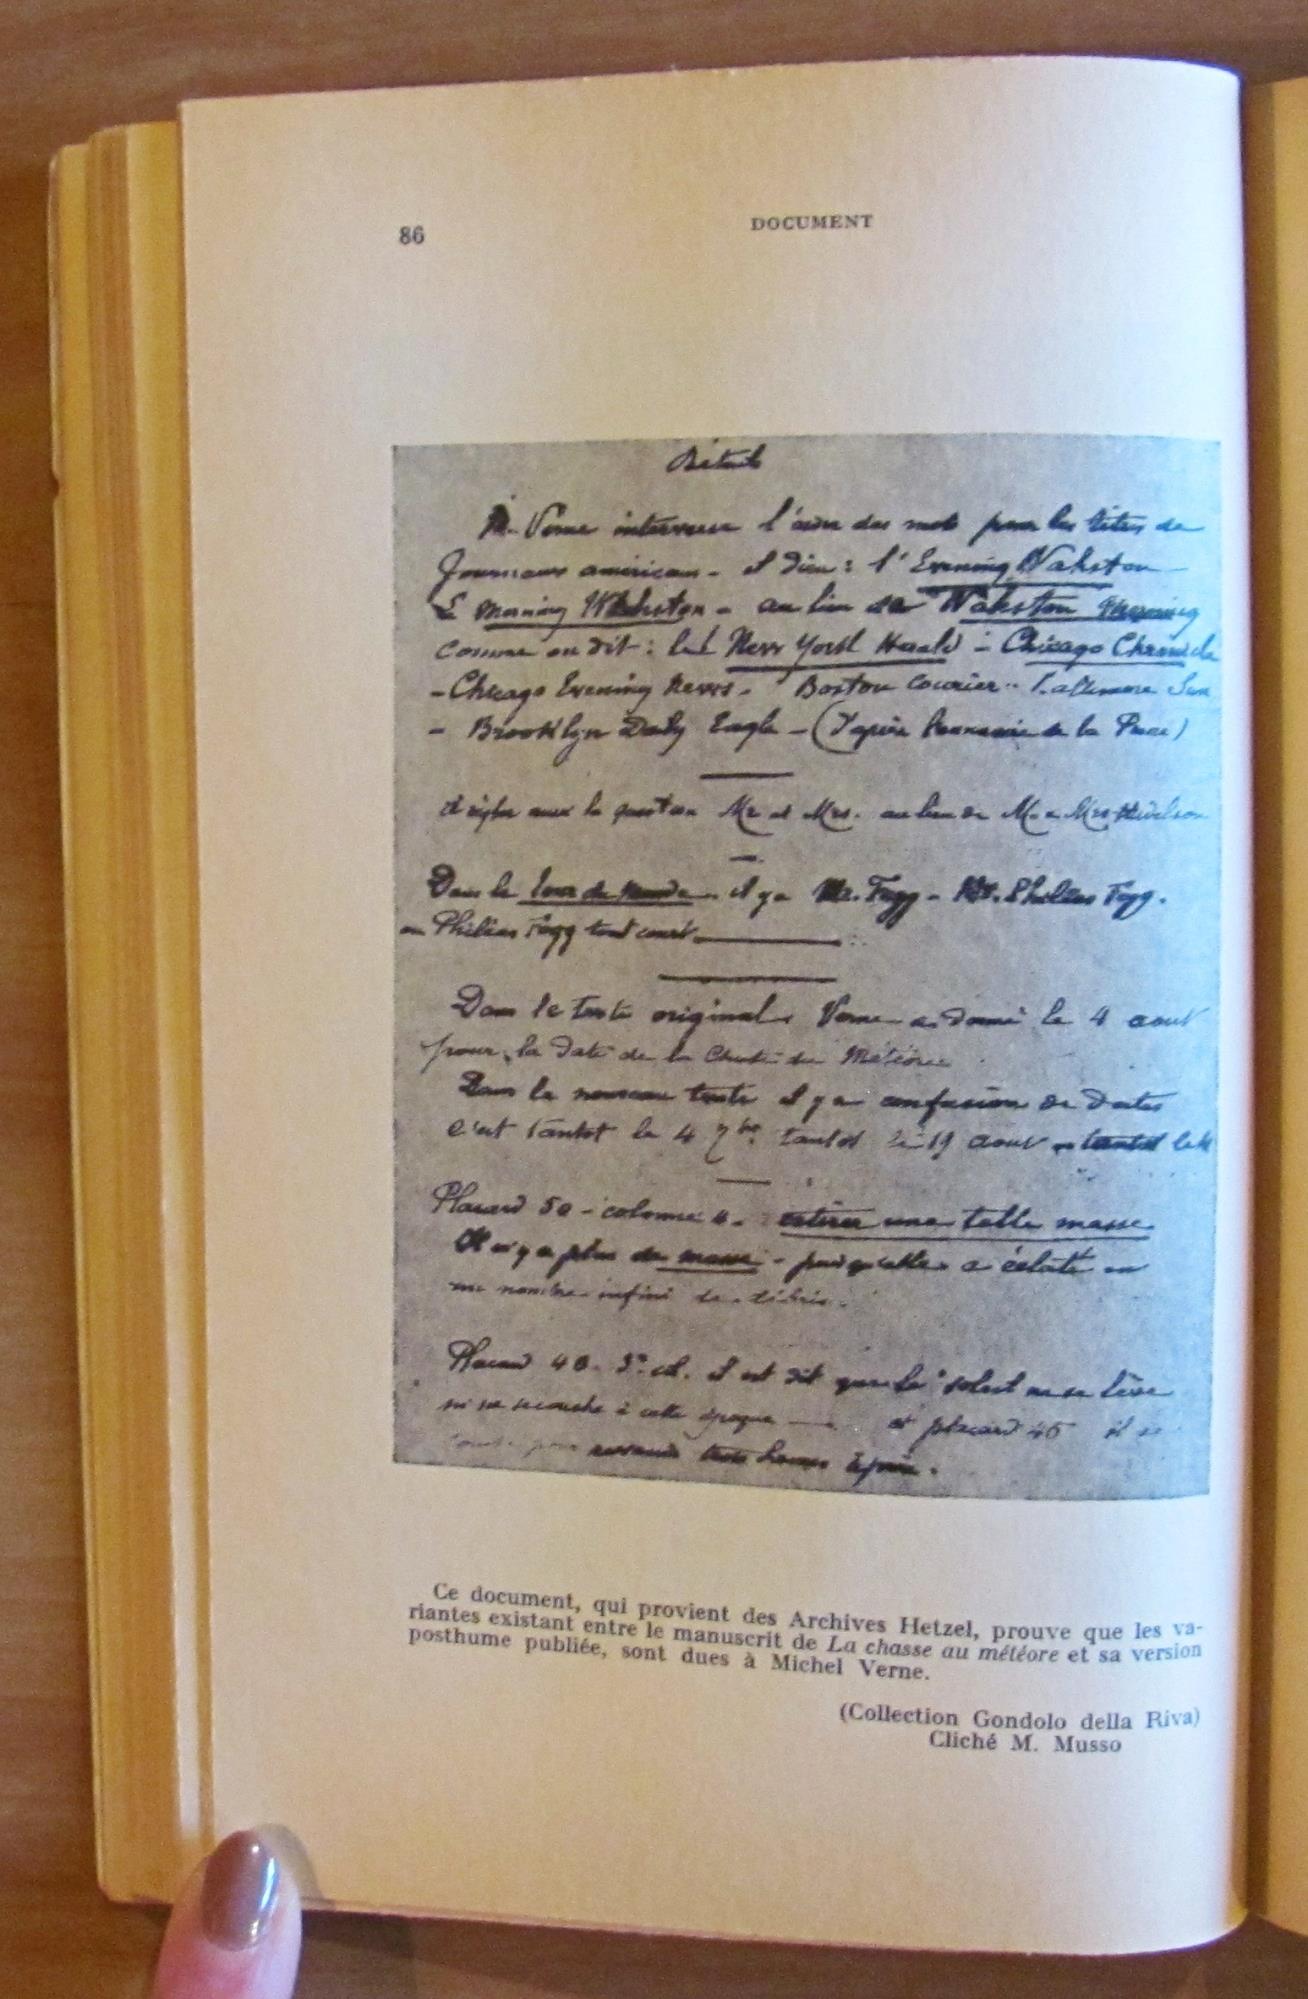 86
DOCUMENT
Détails
M. Verne intervertit l'ordre des mots pour les titres de
Journaux américains - il dira : l'Evening Whaston
Le Morning Whaston - au lieu de Whaston Morning
comme on dit : le New York Herald - Chicago Chronicle
- Chicago Evening News - Boston Courier - Baltimore Sun
- Brooklyn Daily Eagle - (d'après l'annuaire de la Presse)
la question Mr et Mrs. au lieu de M. et Mrs Hudelson
Dans le Tour du Monde - il y a Mr. Fogg - Mr. Philéas Fogg.
ou Philéas Fogg tout court
Dans le texte original, Verne a donné le 4 aout
pour la date de la chute du Météore
Dans le nouveau texte il y a confusion de dates
c'est tantot le 4 7bre tantot le 19 aout - tantot le
Placard 50 - colonne 4 - attirer une telle masse
Il n'y a plus de masse - puisqu'elle a éclaté en
un nombre infini de débris.
Placard 40 - 3e col. il est dit que le soleil ne se lève
ni ne se couche à cette époque et placard 46 il se
couche pour revenir trois heures après.
Ce document, qui provient des Archives Hetzel, prouve que les va-
riantes existant entre le manuscrit de La chasse au météore et sa version
posthume publiée, sont dues à Michel Verne.
(Collection Gondolo della Riva)
Cliché M. Musso